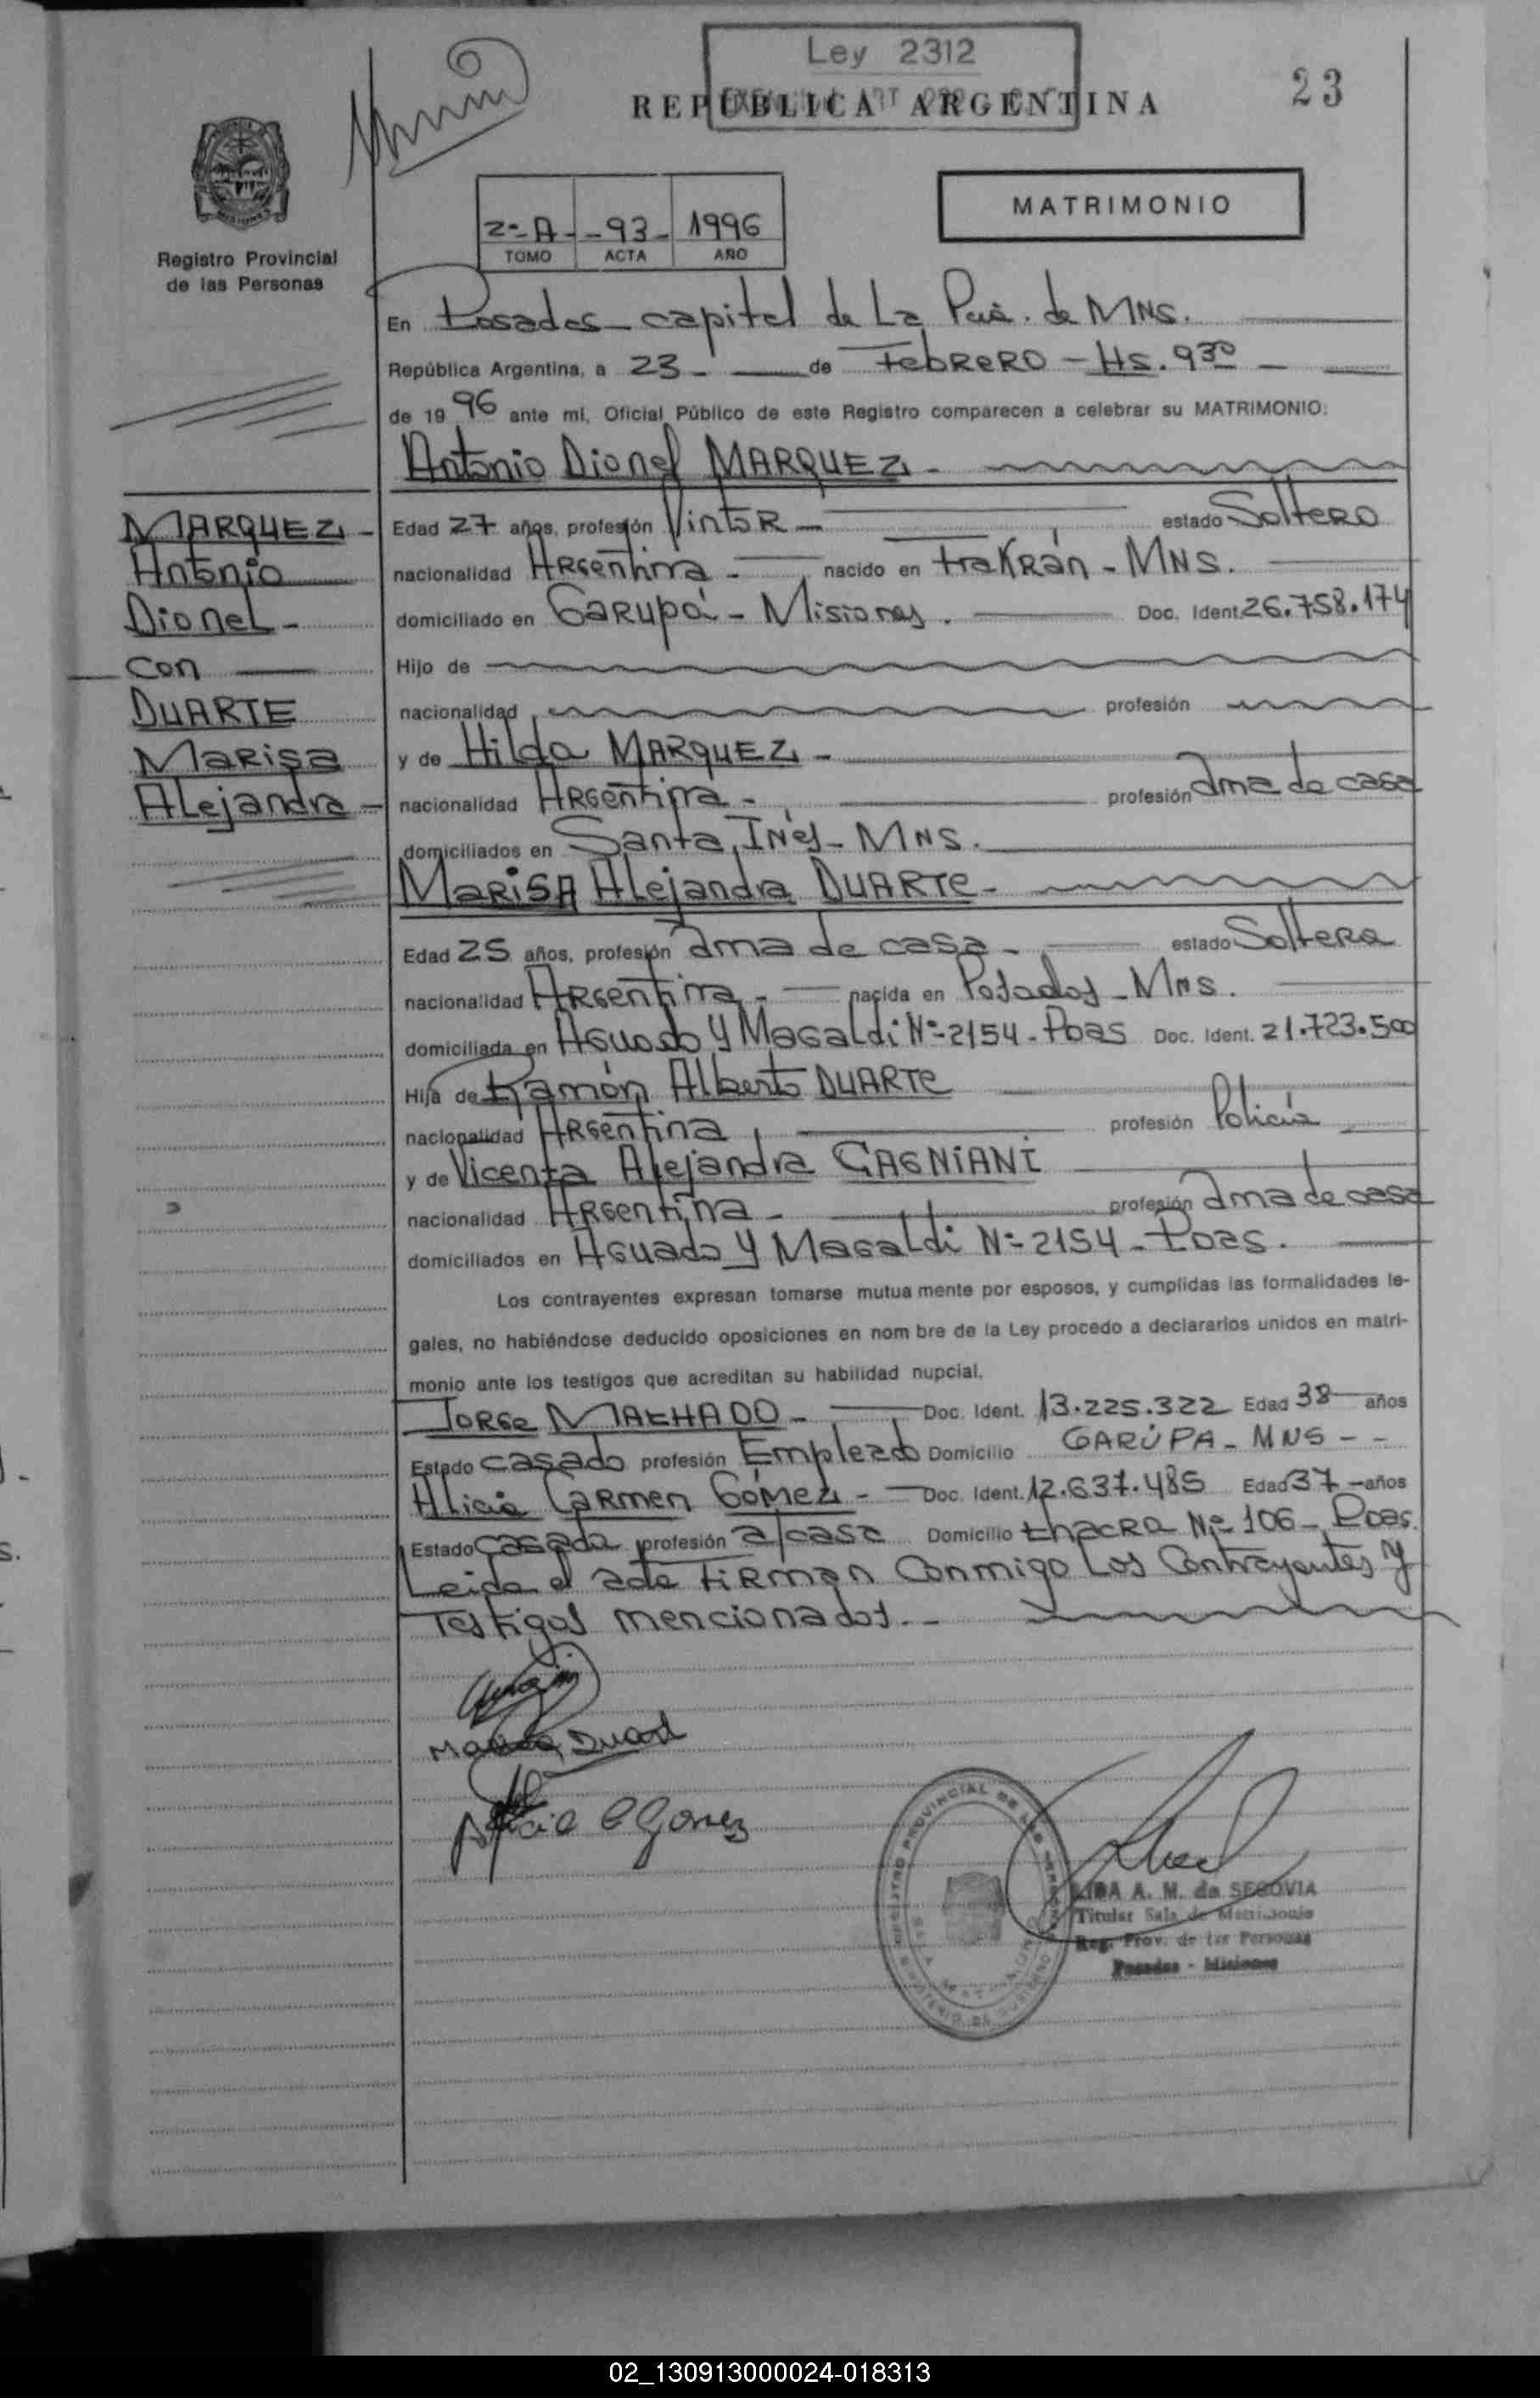 Ley 2312
REPÚBLICA ARGENTINA
23
2º-A- -93- 1996
TOMO ACTA AÑO
MATRIMONIO
Registro Provincial
de las Personas
En Posadas - capital de La de MNS.
República Argentina, a 23 - de Febrero - Hs. 9 30 -
de 19 96 ante mi, Oficial Público de este Registro comparecen a celebrar su MATRIMONIO:
Antonio Dionel MARQUEZ -
MARQUEZ -
Antonio
Dionel -
con
DUARTE
Marisa
Alejandra -
Edad 27 años, profesión Pintor - estado Soltero
nacionalidad Argentina - nacido en - MNS.
domiciliado en Garupá - Misiones. Doc. Ident. 26.758.174
Hijo de
nacionalidad profesión
y de Hilda MARQUEZ -
nacionalidad Argentina - profesión ama de casa
domiciliados en Santa Inés - MNS.
Marisa Alejandra DUARTE -
Edad 25 años, profesión ama de casa - estado Soltera
nacionalidad Argentina - nacida en Posadas - Mns.
domiciliada en Aguado y Magaldi Nº-2154 - Poas Doc. Ident. 21.723.500
Hija de Ramón Alberto DUARTE
nacionalidad Argentina profesión Policía
y de Vicenta Alejandra GAGNIANI
nacionalidad Argentina - profesión ama de casa
domiciliados en Aguado y Magaldi Nº-2154 - Poas.
Los contrayentes expresan tomarse mutua mente por esposos, y cumplidas las formalidades le-
gales, no habiéndose deducido oposiciones en nom bre de la Ley procedo a declararlos unidos en matri-
monio ante los testigos que acreditan su habilidad nupcial.
Jorge MACHADO - Doc. Ident. 13.225.322 Edad 38 años
Estado casado profesión Empleado Domicilio GARUPA - MNS - -
Alicia Carmen Gómez - Doc. Ident. 12.637.485 Edad 37 - años
Estado Casada profesión a/casa Domicilio Chacra Nº 106 - Poas.
Leida el acta Firman Conmigo Los Contrayentes y
Testigos mencionados. -
Duart
Alicia C Gomez
REGISTRO PROVINCIAL DE LAS PERSONAS
LIDA A. M. de SEGOVIA
Titular Sala de Matrimonio
Reg. Prov. de las Personas
Posadas - Misiones
02_130913000024-018313